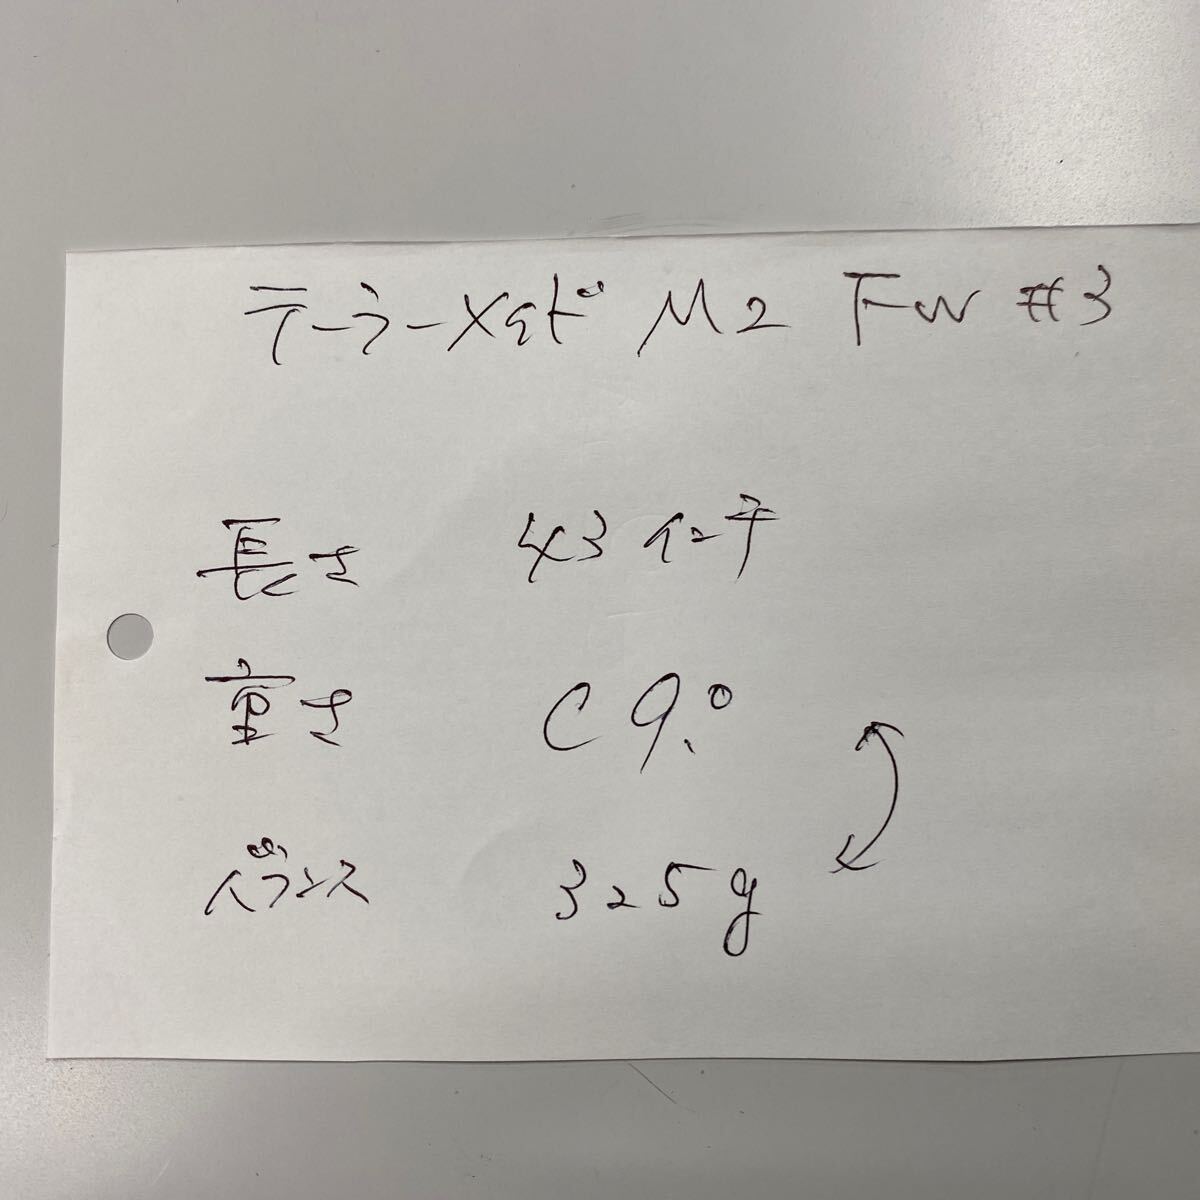 テーラーメイド M2 FW #3
長さ 43インチ
重さ C9.0
バランス 325g